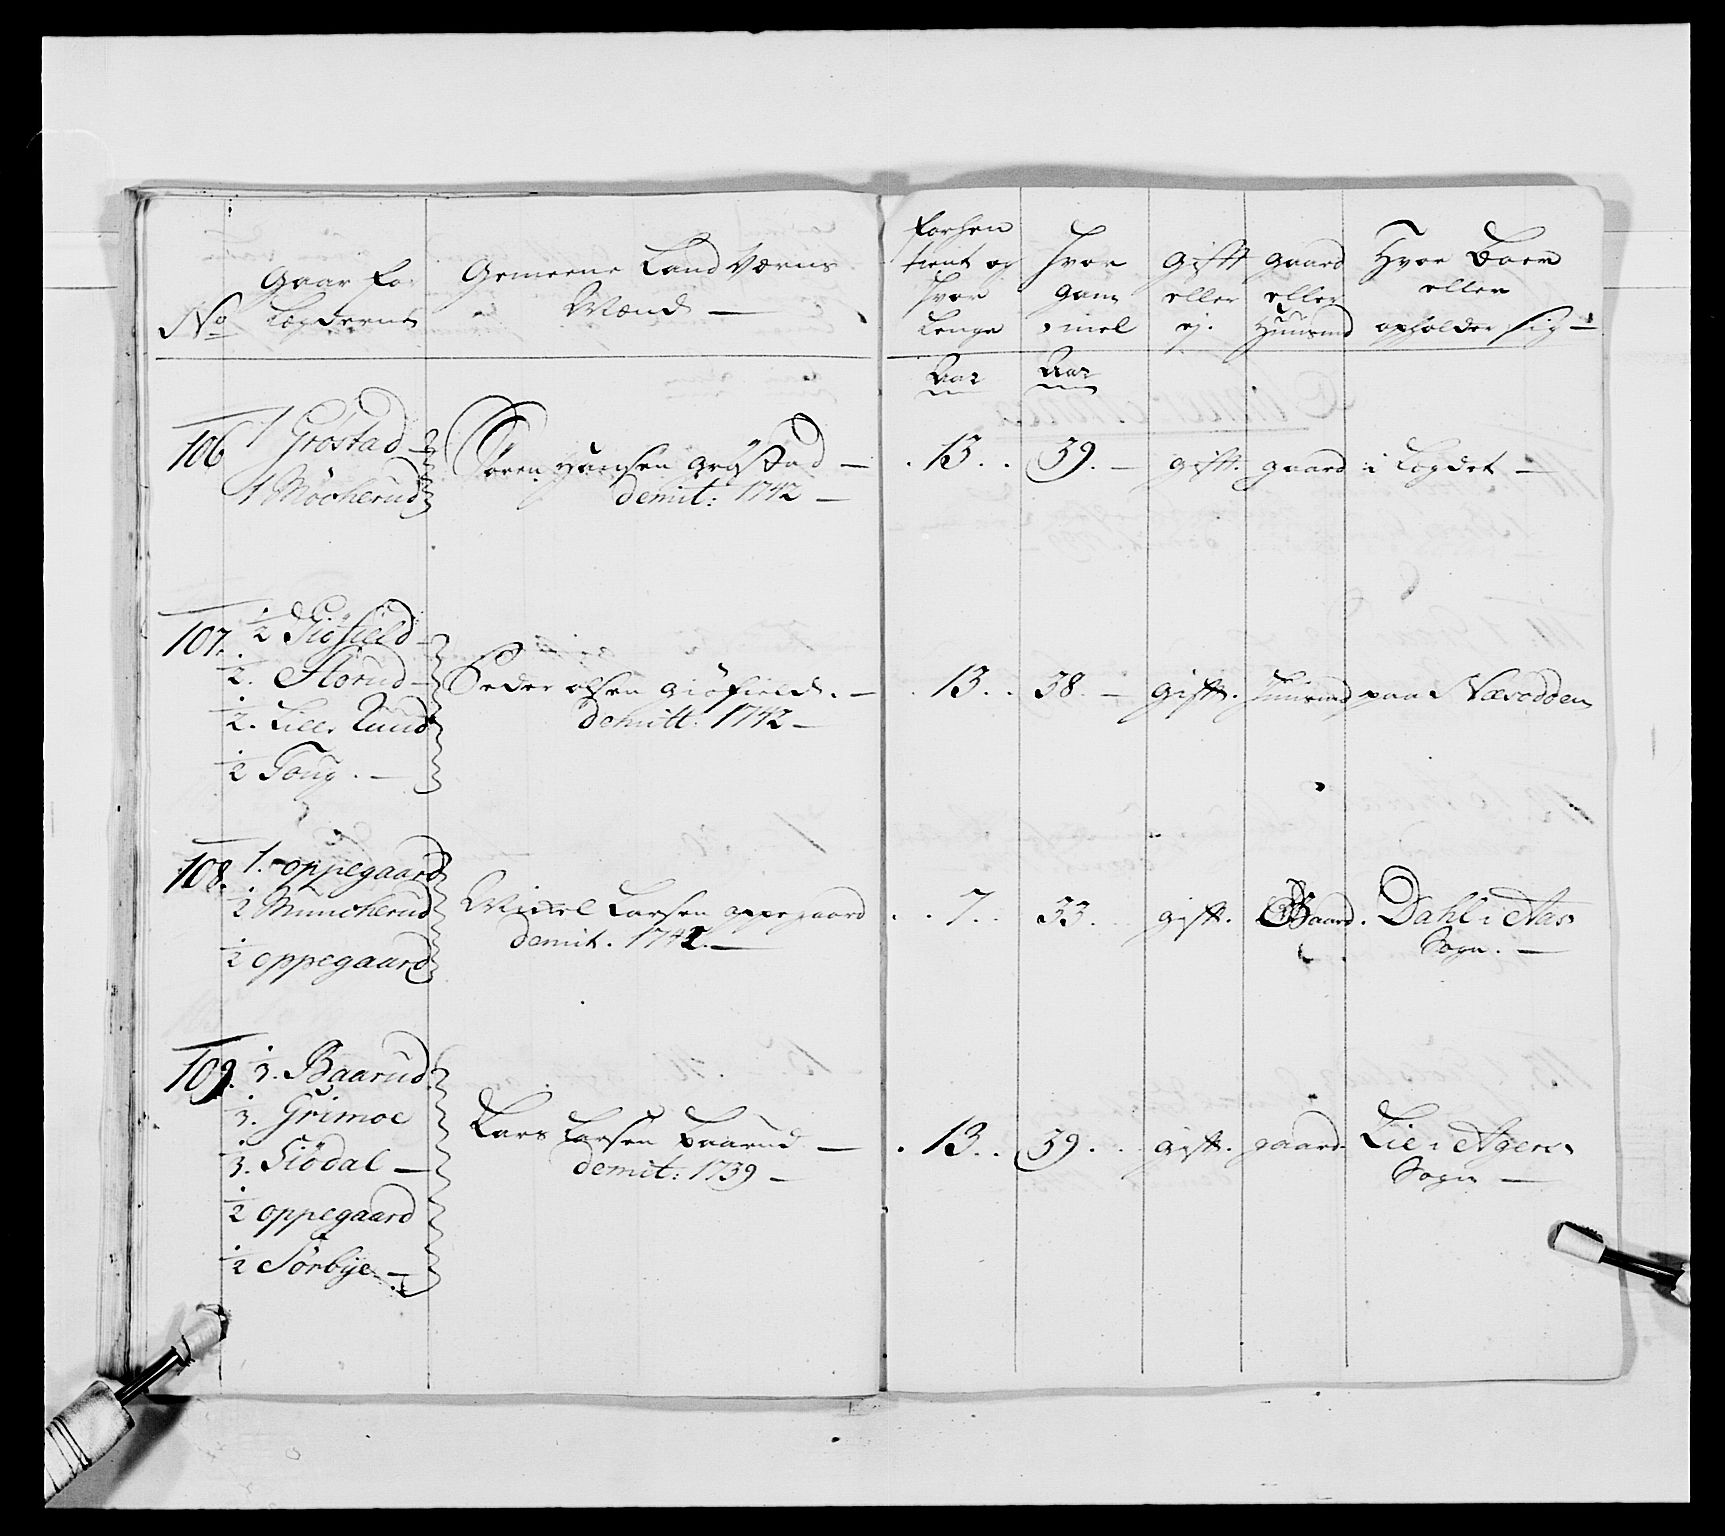 No
Gaar for
Legderne
Gemeene Land Værns
Mænd —
forhen
tient og
hvor
Lenge
Hvor
gam
mel
Gifft
eller
ej.
gaard
eller
Huusmd
Hvor Boer
eller
opholder sig —
Aar
Aar
106 1 Gröstad —
1 Möcherud
Sören Hansen Gröstad —
demit: 1742 —
13. 39. — gifft. gaard i Legdet —
107. 1/2 Giöfield —
1/2. Storud —
1/2. Lille Ruud
1/2 Toug. —
Peder Olsen Giöfield. —
demitt: 1742 —
13. 38. — gifft. Huusmd paa Næsodden
108. 1. oppegaard
1/2 Muncherud
1/2 oppegaard
Mickel Larsen oppegaard
demit. 1742. —
7. 33. gifft. Gaard. Dahl i Aas
Sogn. —
109. 1/3. Baarud
1/3. Grimoe
1/3. Siödal —
1/2 oppegaard
1/2 Sörbye —
Lars Larsen Baarud —
demit: 1739 —
13. 39. gifft. gaard. Lie i Agers
Sogn —